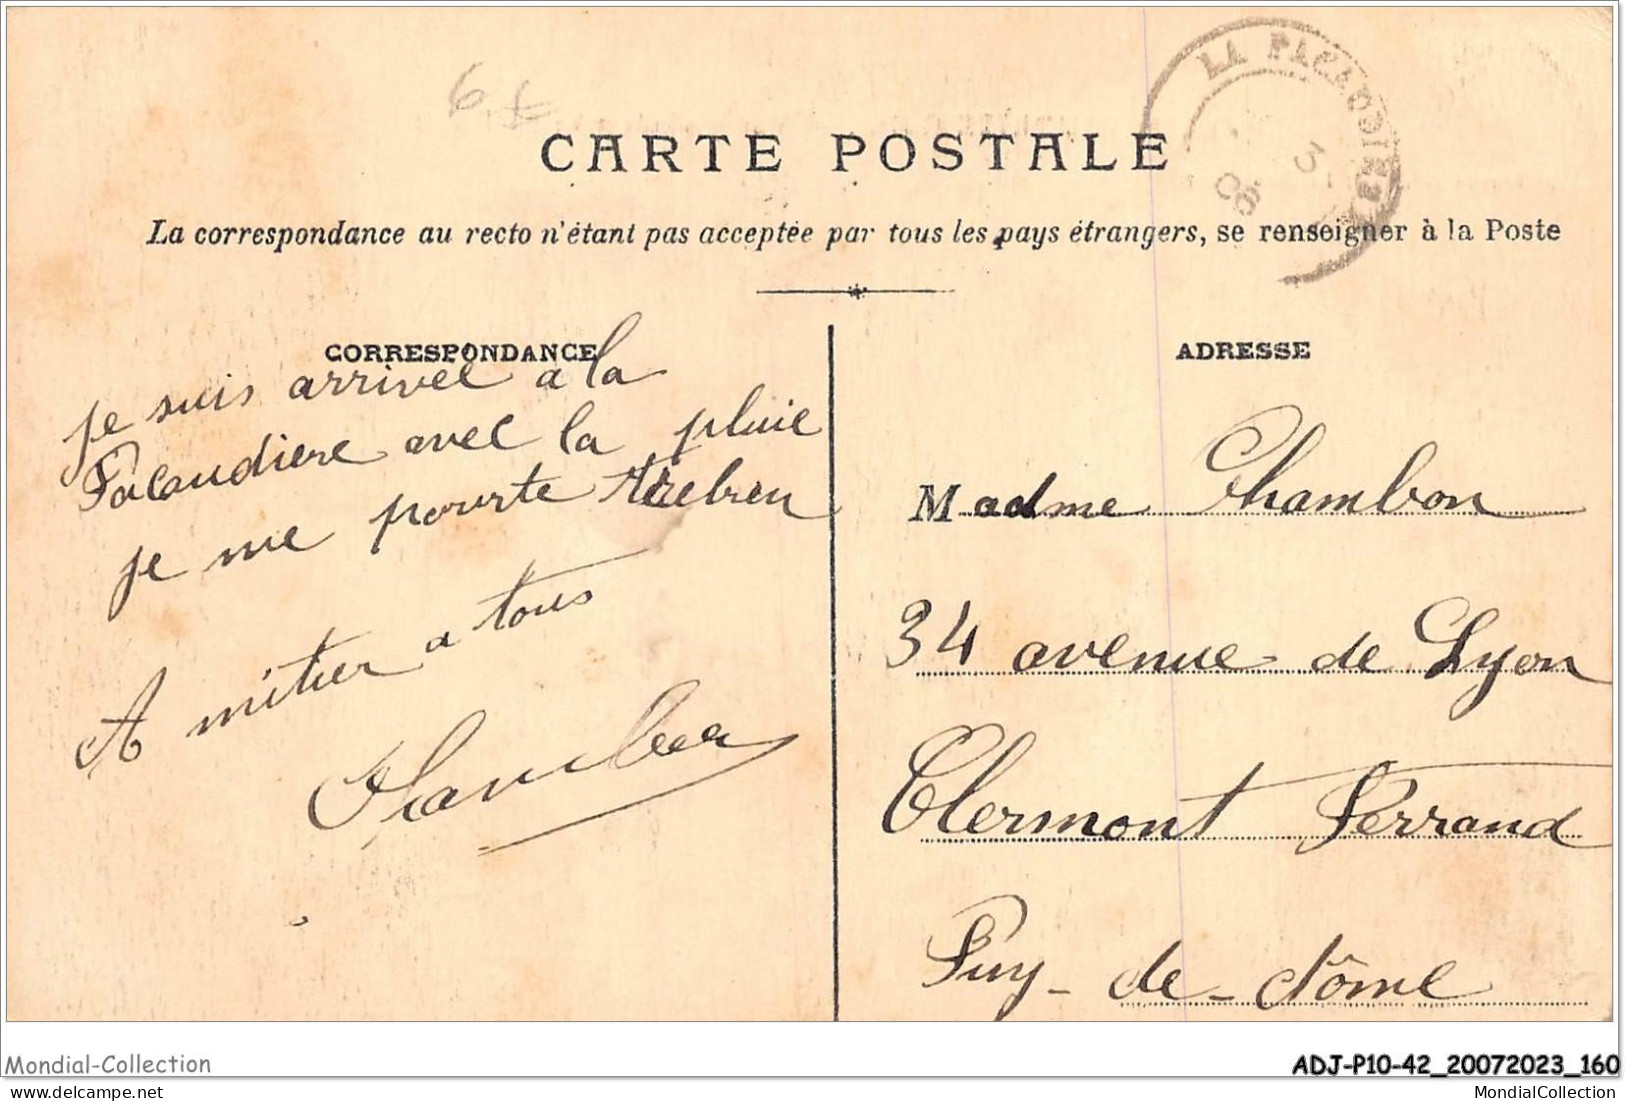 79
LA PACAUDIERE
3
08
CARTE POSTALE
La correspondance au recto n'étant pas acceptée par tous les pays étrangers, se renseigner à la Poste
CORRESPONDANCE
je suis arrivee a la
Pacaudiere avec la pluie
je me pourte trebien
A mitier a tous
ADRESSE
Madme Chambon
34 avenue de Lyon
Clermont Ferrand
Puy-de-dôme
Mondial-Collection
ADJ-P10-42_20072023_160
MondialCollection